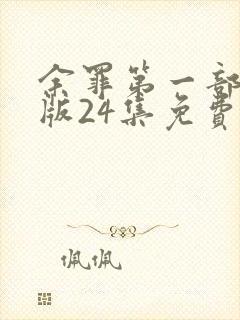 余罪第一部
版24集免费
佩佩